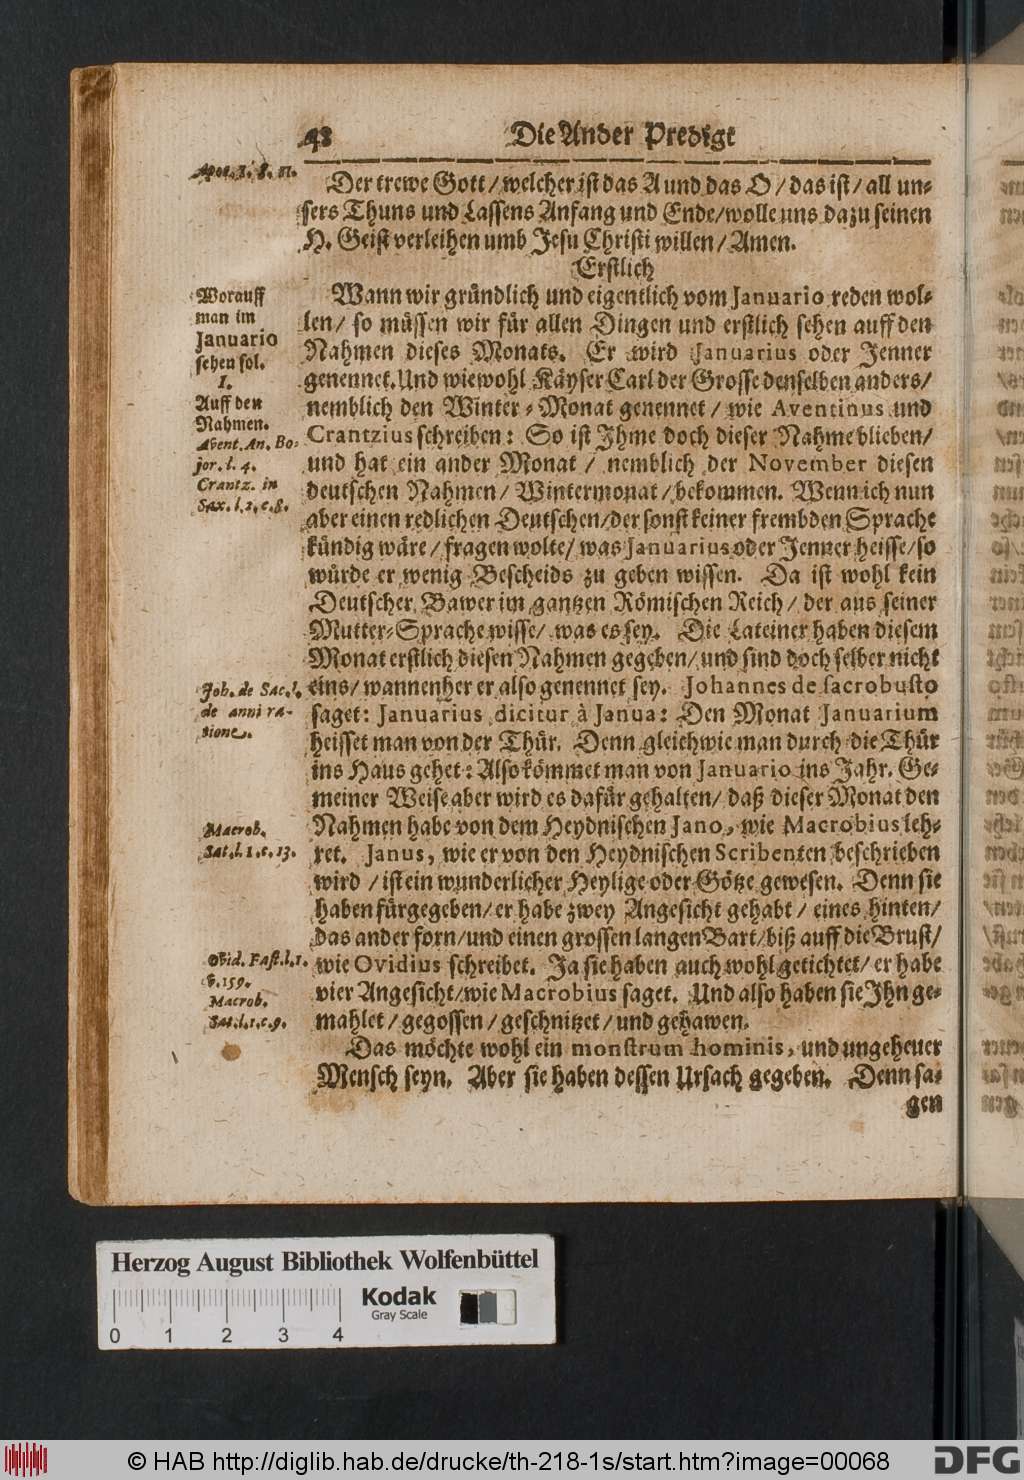 42 Die Ander Predigt
Der trewe Gott/ welcher ist das A und das O/ das ist/ all un⸗
sers Thuns und Lassens Anfang und Ende/ wolle uns dazu seinen
H. Geist verleihen umb Jesu Christi willen/ Amen.
Erstlich
Worauff
man im
Januario
sehen sol.
1.
Auff den
Nahmen.
Avent. An. Bo⸗
jor. l. 4.
Crantz. in
Sax. l. 2. c. 8.
Wann wir gründlich und eigentlich vom Januario reden wol⸗
len/ so müssen wir für allen Dingen und erstlich sehen auff den
Nahmen dieses Monats. Er wird Januarius oder Jenner
genennet. Und wiewohl Käyser Carl der Grosse denselben anders/
nemblich den Winter⸗Monat genennet/ wie Aventinus und
Crantzius schreiben: So ist Ihme doch dieser Nahme blieben/
und hat ein ander Monat/ nemblich der November diesen
deutschen Nahmen/ Wintermonat/ bekommen. Wenn ich nun
aber einen redlichen Deutschen/ der sonst keiner frembden Sprache
kündig wäre/ fragen wolte/ was Januarius oder Jenner heisse/ so
würde er wenig Bescheids zu geben wissen. Da ist wohl kein
Deutscher Bawer im gantzen Römischen Reich/ der aus seiner
Mutter⸗Sprache wisse/ was es sey. Die Lateiner haben diesem
Monat erstlich diesen Nahmen gegeben/ und sind doch selber nicht
Joh. de Sac. l.
de anni ra-
tione.
eins/ wannenher er also genennet sey. Johannes de sacrobusto
saget: Januarius dicitur à Janua: Den Monat Januarium
heisset man von der Thür. Denn gleichwie man durch die Thür
ins Haus gehet: Also kömmet man von Januario ins Jahr. Ge⸗
meiner Weise aber wird es dafür gehalten/ daß dieser Monat den
Macrob.
Sat. l. 1. c. 13.
Nahmen habe von dem Heydnischen Jano, wie Macrobius leh⸗
ret. Janus, wie er von den Heydnischen Scribenten beschrieben
wird/ ist ein wunderlicher Heylige oder Götze gewesen. Denn sie
haben fürgegeben/ er habe zwey Angesicht gehabt/ eines hinten/
das ander forn/ und einen grossen langen Bart/ biß auff die Brust/
Ovid. Fast. l. 1.
v. 159.
Macrob.
Sat. l. 1. c. 9.
wie Ovidius schreibet. Ja sie haben auch wohl getichtet/ er habe
vier Angesicht/ wie Macrobius saget. Und also haben sie Ihn ge⸗
mahlet/ gegossen/ geschnitzet/ und gehawen.
Das möchte wohl ein monstrum hominis, und ungeheuer
Mensch seyn. Aber sie haben dessen Ursach gegeben. Denn sa⸗
gen
Herzog August Bibliothek Wolfenbüttel
Kodak
Gray Scale
0 1 2 3 4
© HAB http://diglib.hab.de/drucke/th-218-1s/start.htm?image=00068
DFG